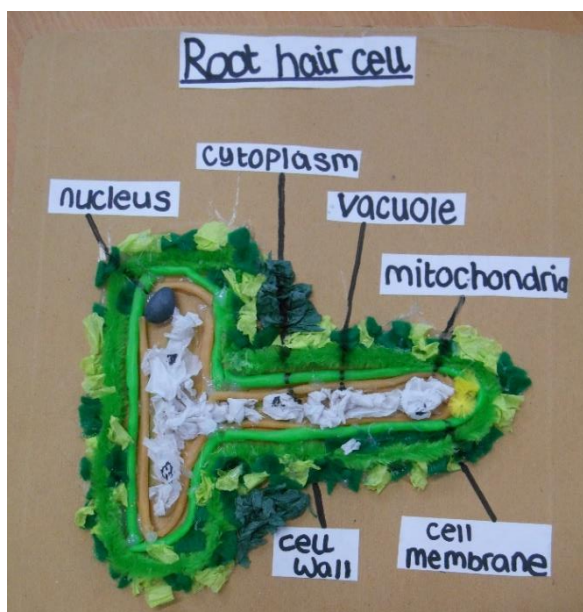 Root hair cell
cytoplasm
nucleus
vacuole
mitochondria
cell
wall
cell
membrane